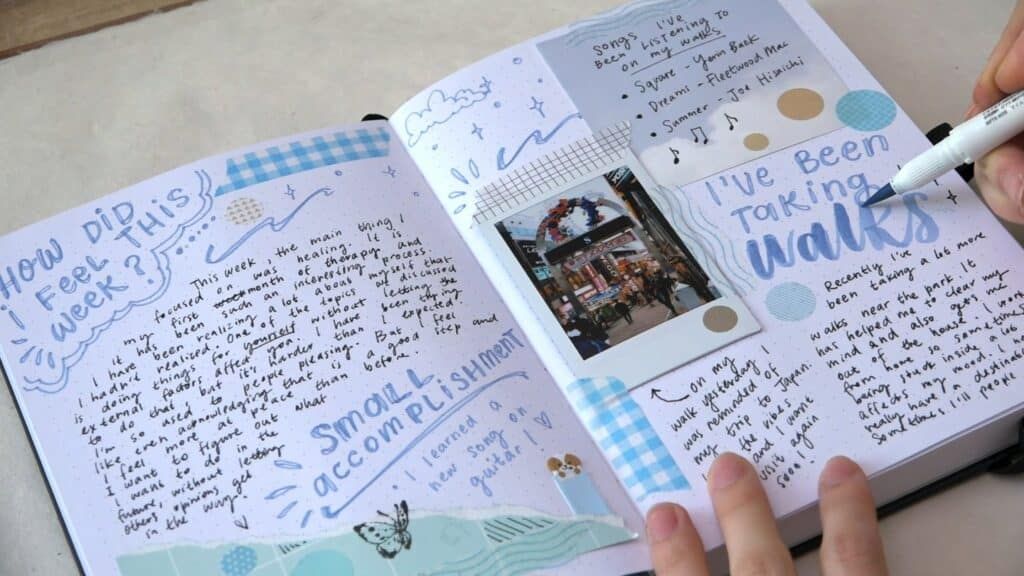 HOW DID
I FEEL THIS
WEEK?
This week the main thing I
focused on was healing. It is
my first month of therapy and
it has been such an interesting process and
I have been realizing a lot about myself that
I hadn't realized. One of the topics discussed
is doing things for yourself without letting the
external factors affect you. I have been
to do that but it's harder than I expected
I'm so used to people pleasing. But, I feel
like even acknowledging that is a good step and
I feel more at peace than before.
I want to figure out what
I want to do in the
future, without letting
others opinions get
in the way
SMALL
accomplishment
• I learned a
new song on
guitar!
Songs I've
Been Listening to
on my walks
• Square - Yerin Baek
• Dreams - Fleetwood Mac
• Summer - Joe Hisaichi
I'VE BEEN
Taking
walks
Recently I've
been taking a lot more
walks near the park. It
has helped me to clear my
mind and also gets me
out of the house. I work
from home so sometimes
being stuck inside
affects my mood. I don't
really have a destination
sometimes. I'll people
on my
walk yesterday I
was reminded of
my trip to Japan.
I miss the vibes
and I want
to visit again
soon!